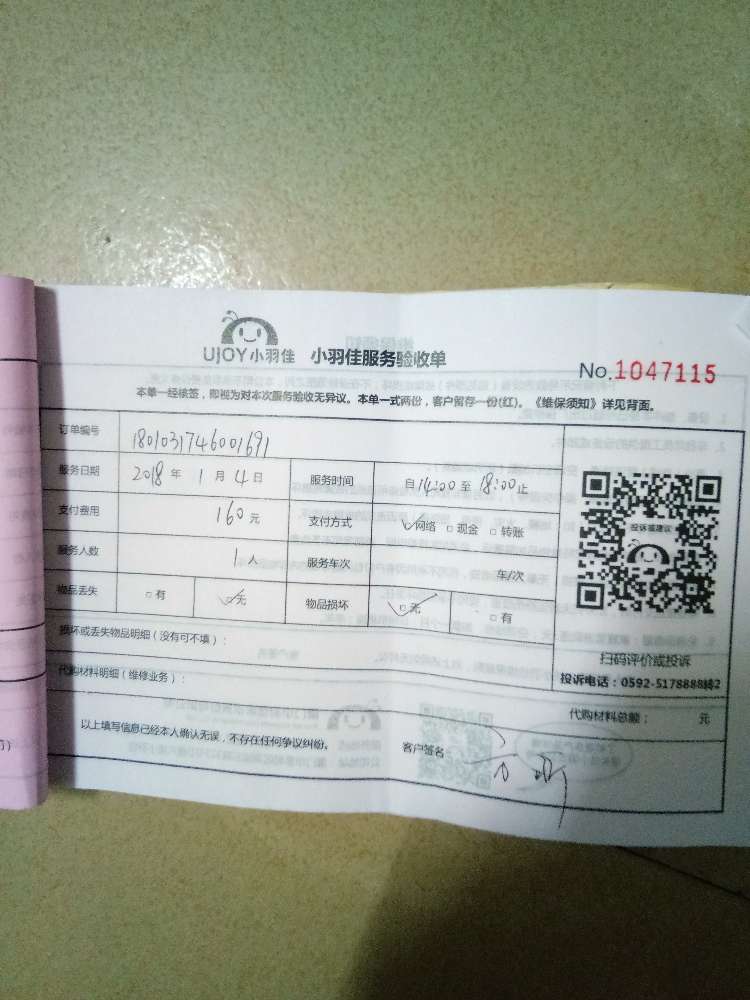 UJOY小羽佳 小羽佳服务验收单
No.1047115
本单一经核签，即视为对本次服务验收无异议。本单一式两份，客户留存一份(红)。《维保须知》详见背面。
订单编号 1801031746001691
服务日期 2018年1月4日 服务时间 自14:00至18:00止
支付费用 160元 支付方式 ☑网络 □现金 □转账
服务人数 1人 服务车次 车/次
物品丢失 □有 ☑无 物品损坏 ☑无 □有
损坏或丢失物品明细（没有可不填）：
代购材料明细（维修业务）：
投诉或建议
扫码评价或投诉
投诉电话：0592-5178888转2
代购材料总额： 元
以上填写信息已经本人确认无误，不存在任何争议纠纷。 客户签名